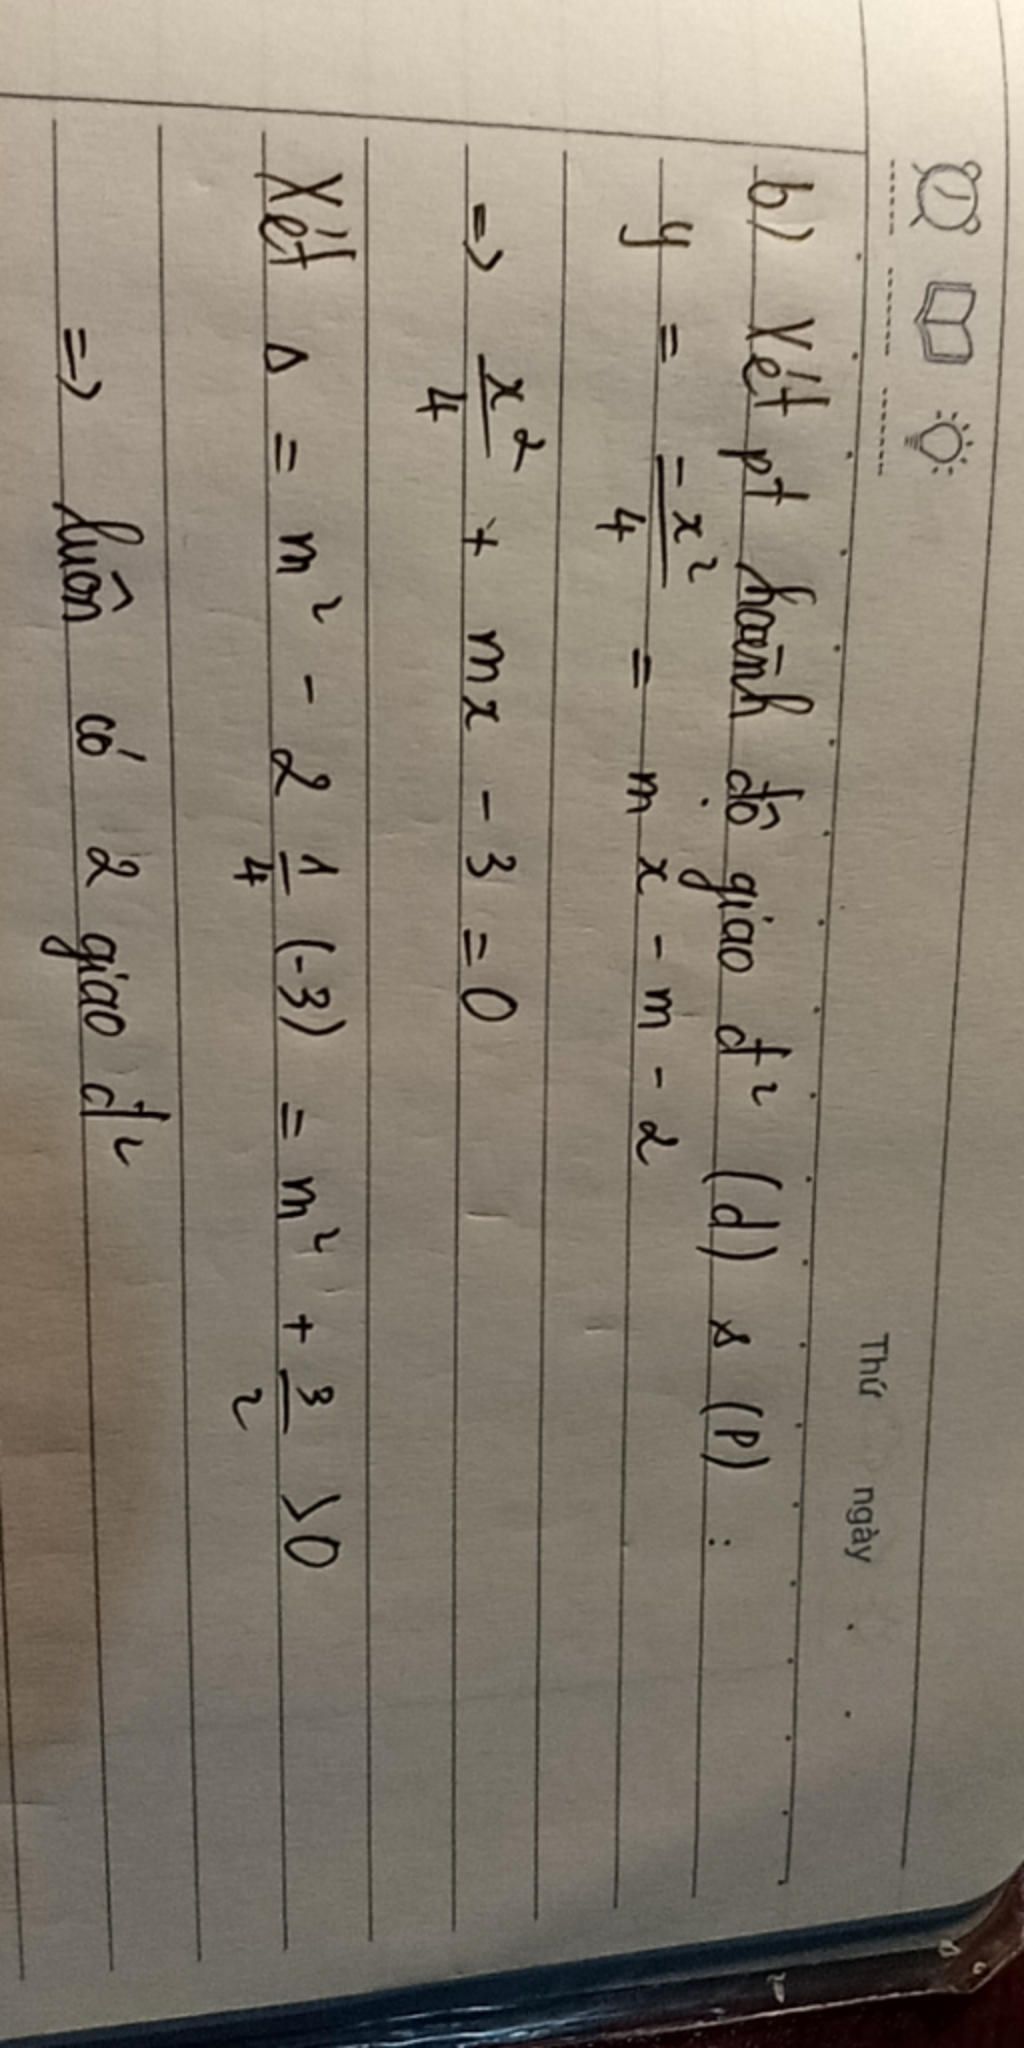 Thứ ngày
b) Xét pt hoành độ giao đ² (d) & (P) :
y = -x²/4 = m x - m - 2
=> x²/4 + mx - 3 = 0
Xét Δ = m² - 2 1/4 (-3) = m² + 3/2 > 0
=> luôn có 2 giao đ²